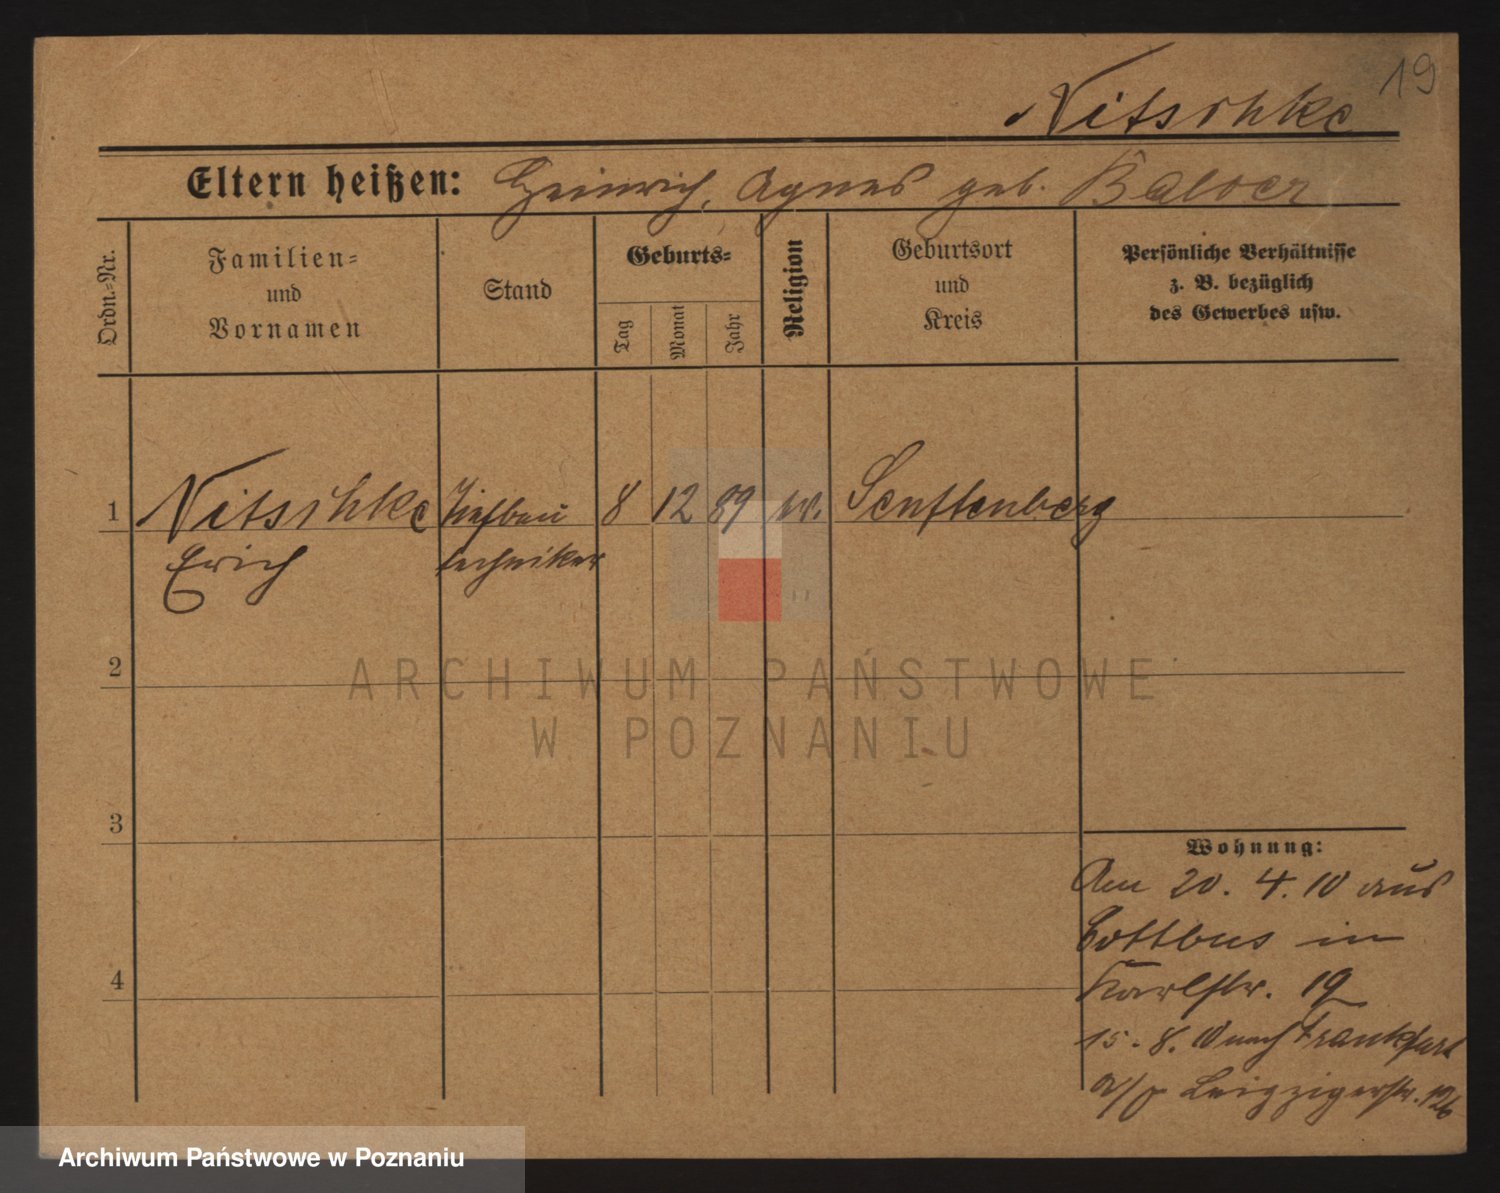 19
Nitschke
Eltern heißen: Heinrich, Agnes geb.
Ordn.-Nr.
Familien-
und
Vornamen
Stand
Geburts-
Tag
Monat
Jahr
Religion
Geburtsort
und
Kreis
Persönliche Verhältnisse
z. B. bezüglich
des Gewerbes usw.
1 Nitschke Tiefbau 8 12 89 ev. Senftenberg
Erich techniker
2
3
4
Wohnung:
Am 20. 4. 10 aus
Cottbus in
Karlstr. 19
15. 8. 10 nach Frankfurt
a/O Leipzigerstr. 126
ARCHIWUM PAŃSTWOWE
W POZNANIU
Archiwum Państwowe w Poznaniu